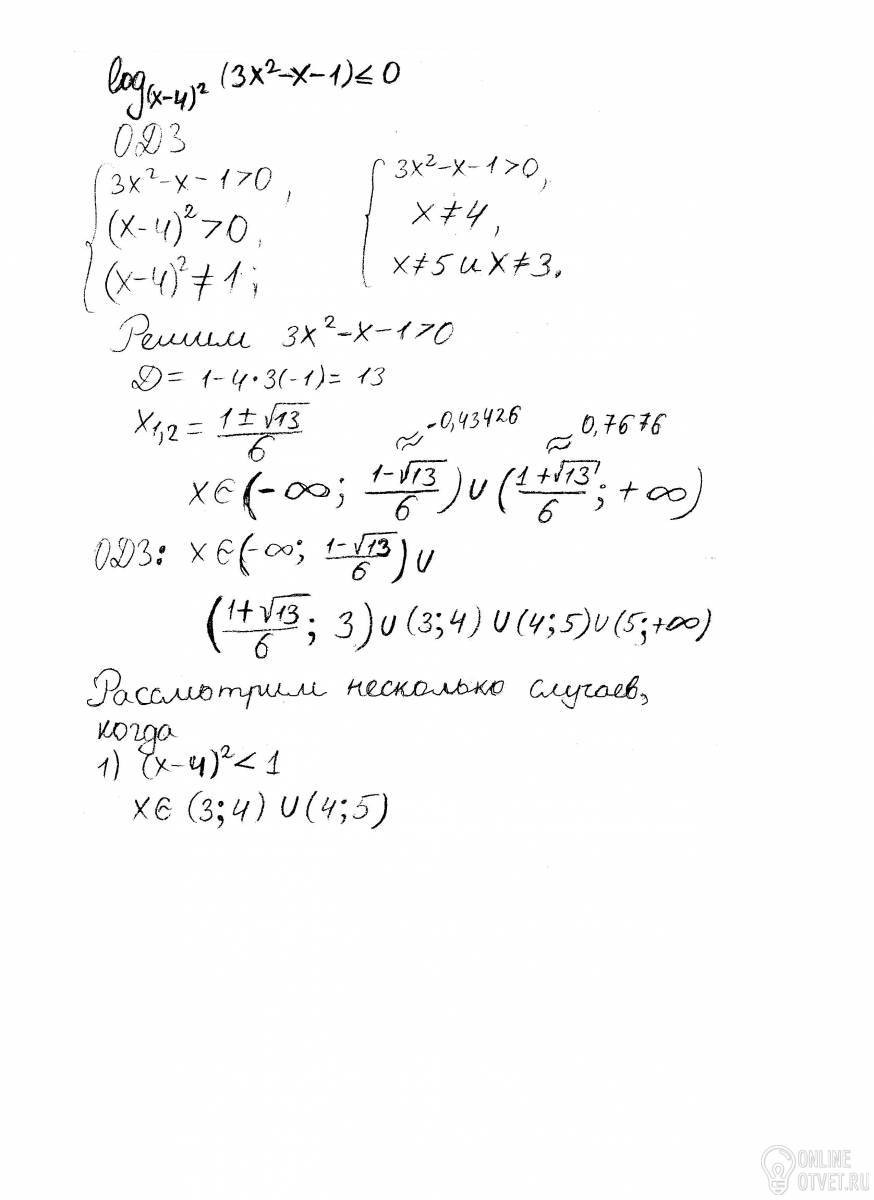 log₍ₓ₋₄₎² (3x²-x-1)≤0
ОДЗ
{ 3x²-x-1>0, { 3x²-x-1>0,
(x-4)²>0, x≠4,
(x-4)²≠1; x≠5 и x≠3.
Решим 3x²-x-1>0
Д = 1-4·3(-1) = 13
x₁,₂ = (1±√13)/6 ≈ -0,43426 ≈ 0,7676
x∈(-∞; (1-√13)/6)∪((1+√13)/6; +∞)
ОДЗ: x∈(-∞; (1-√13)/6)∪
((1+√13)/6; 3)∪(3;4)∪(4;5)∪(5;+∞)
Рассмотрим несколько случаев,
когда
1) (x-4)²<1
x∈(3;4)∪(4;5)
ONLINE
OTVET.RU